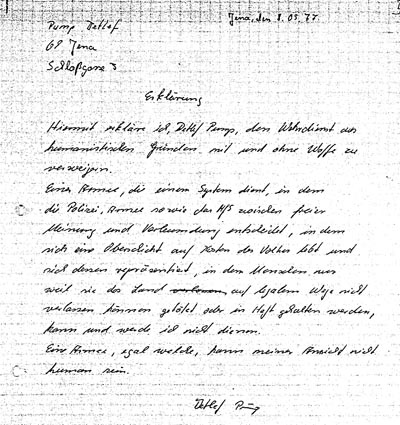 Jena, den 8.05.77
Pump Detlef
69 Jena
Schloßgasse 3
Erklärung
Hiermit erkläre ich, Detlef Pump, den Wehrdienst aus
humanistischen Gründen mit und ohne Waffe zu
verweigern.
Einer Armee, die einem System dient, in dem
die Polizei, Armee sowie das MfS zwischen freier
Meinung und Verleumdung entscheidet, in dem
sich eine Oberschicht auf Kosten des Volkes lebt und
sich dessen repräsentiert, in dem Menschen nur
weil sie das Land auf legalem Wege nicht
verlassen können getötet oder in Haft gehalten werden,
kann und werde ich nicht dienen.
Eine Armee, egal welche, kann meiner Ansicht nicht
human sein.
Detlef Pump